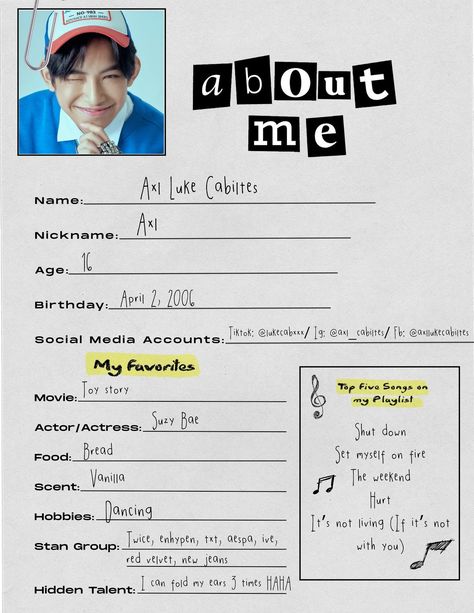 NO·983
about
me
Name: Axl Luke Cabiltes
Nickname: Axl
Age: 16
Birthday: April 2, 2006
Social Media Accounts: Tiktok: @lukecabxxx/ Ig: @axl_cabiltes/ Fb: @axllukecabiltes
My Favorites
Movie: Toy story
Actor/Actress: Suzy Bae
Food: Bread
Scent: Vanilla
Hobbies: Dancing
Stan Group: Twice, enhypen, txt, aespa, ive,
red velvet, new jeans
Hidden Talent: I can fold my ears 3 times HAHA
Top Five Songs on
my Playlist
Shut down
Set myself on fire
The weekend
Hurt
It's not living (If it's not
with you)